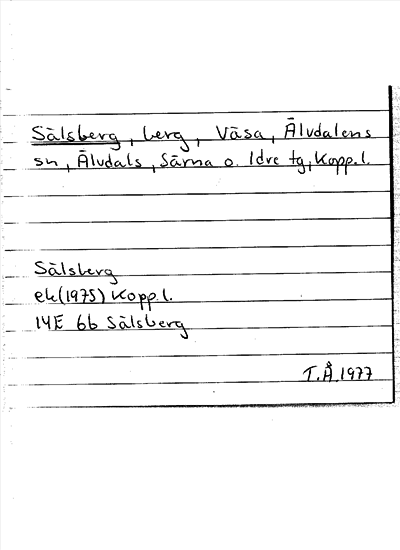 Sälsberg, berg, Väsa, Älvdalens
sn, Älvdals, Särna o. Idre tg, Kopp.l.
Sälsberg
ek(1975) Kopp.l.
14E 6b Sälsberg
T.Å.1977